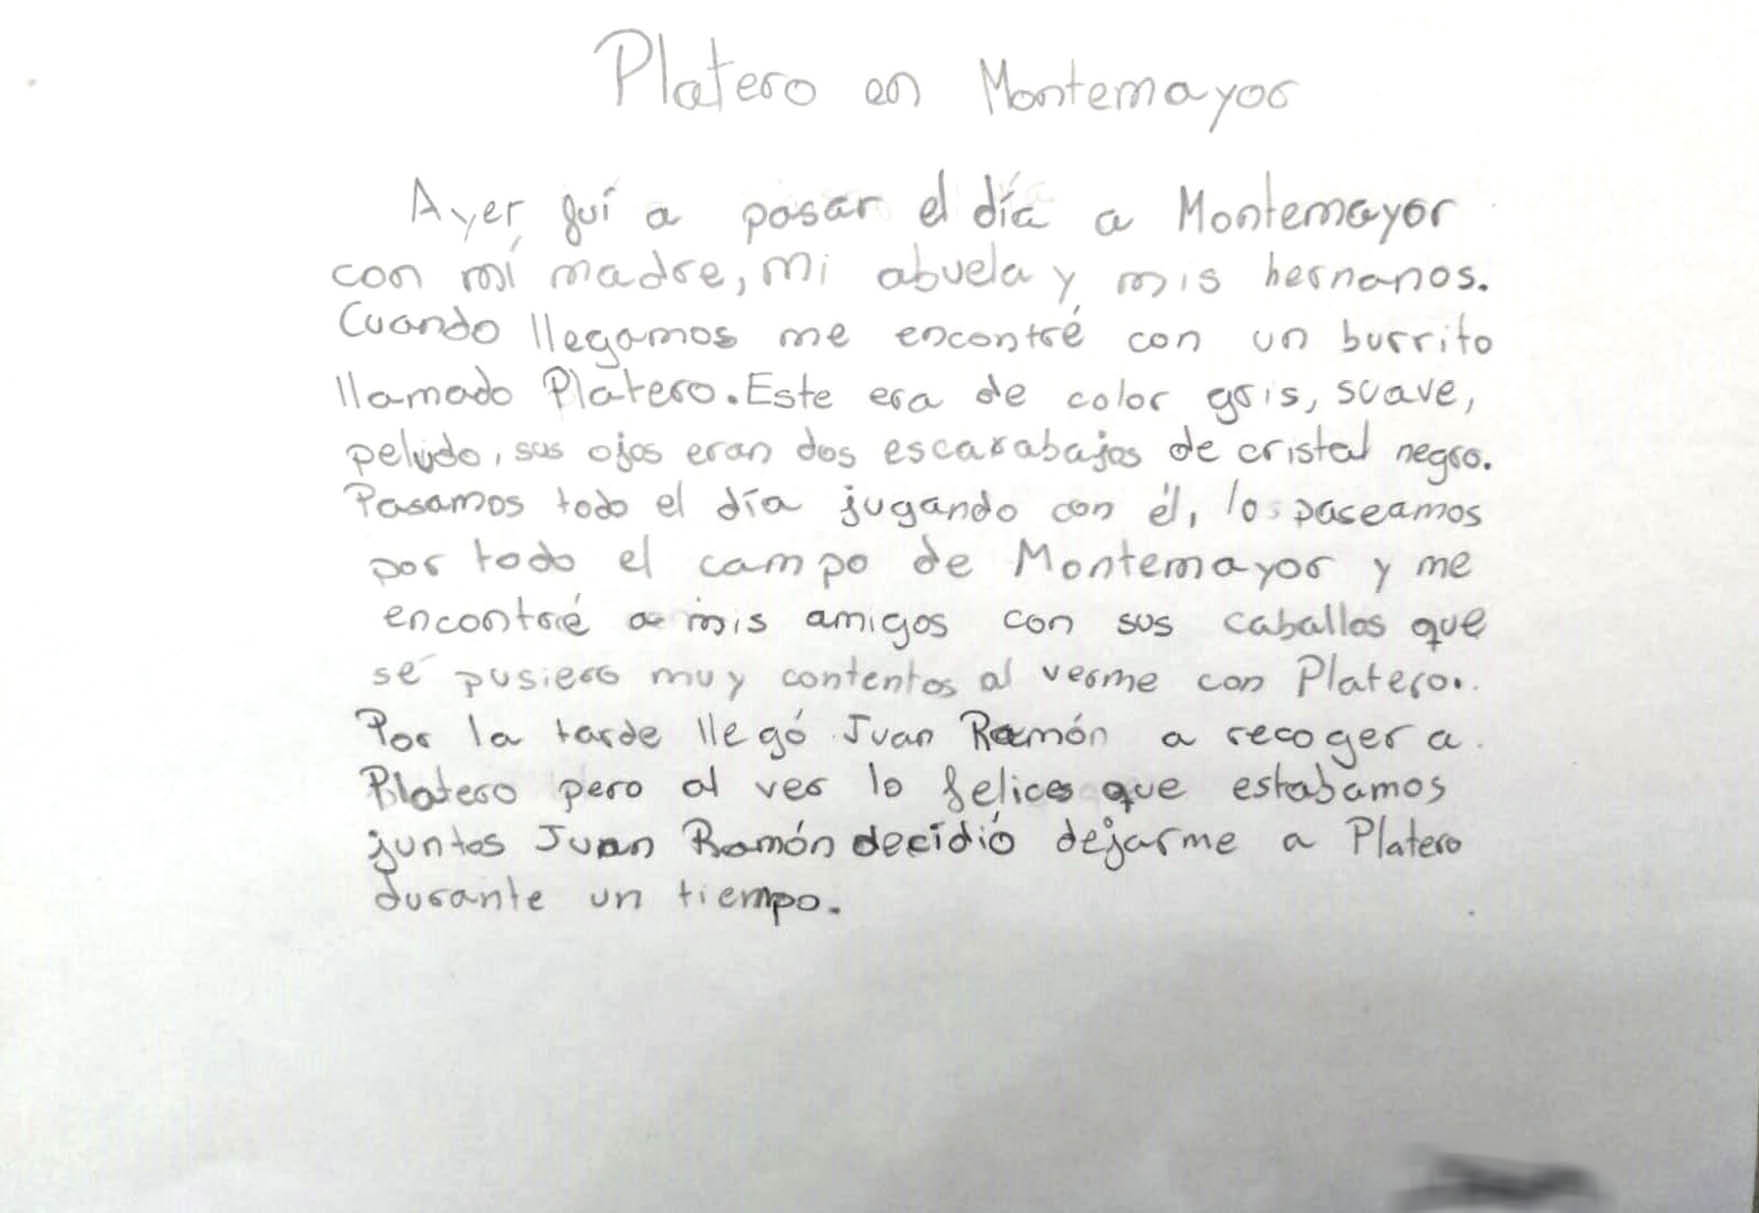 Platero en Montemayor
Ayer fuí a pasar el día a Montemayor
con mí madre, mi abuela y mis hermanos.
Cuando llegamos me encontré con un burrito
llamado Platero. Este era de color gris, suave,
peludo, sus ojos eran dos escarabajos de cristal negro.
Pasamos todo el día jugando con él, lo paseamos
por todo el campo de Montemayor y me
encontré a mis amigos con sus caballos que
sé pusiero muy contentos al verme con Platero.
Por la tarde llegó Juan Ramón a recoger a
Platero pero al ver lo felices que estabamos
juntos Juan Ramón decidió dejarme a Platero
durante un tiempo.